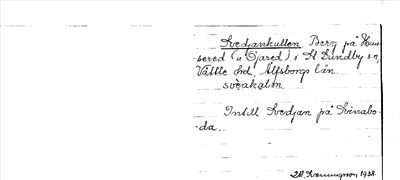 Svedjankullen. Berg på Hun-
sered (u Öjared) i St Lundby sn,
Vättle hd, Älfsborgs län.
svèakalm.
Intill Svedjan på Svinabo-
da.
1938.